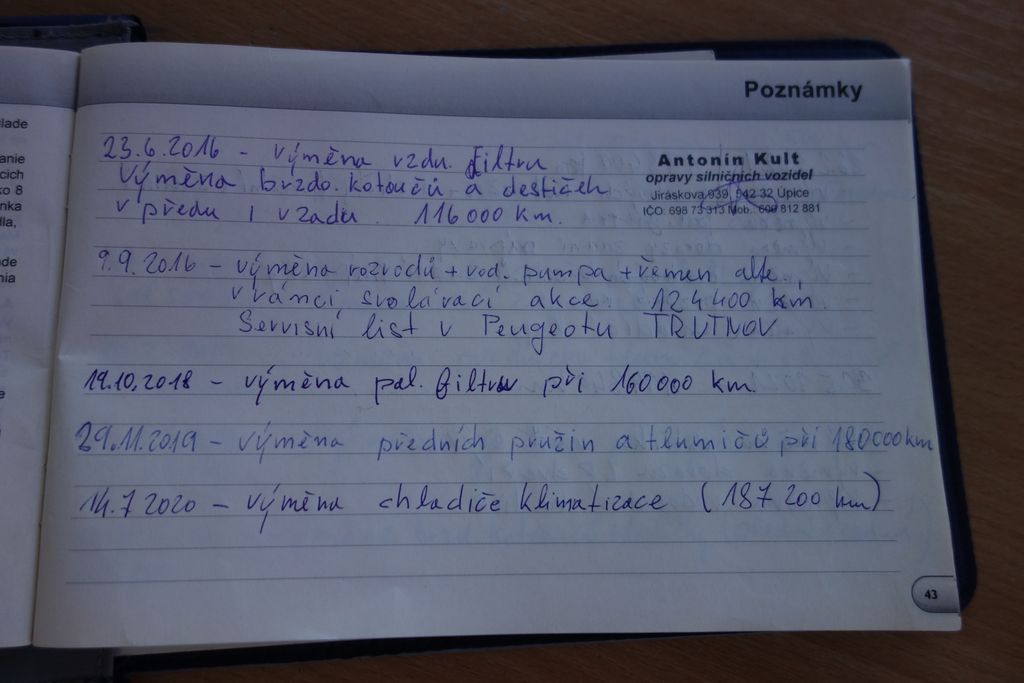 lade
anie
cich
ko 8
nka
dla,
ode
nia
Poznámky
23.6.2016 - výměna vzdu. filtru
Výměna brzdo. kotoučů a destiček
v předu i vzadu 116 000 km.
Antonín Kult
opravy silničních vozidel
Jiráskova 939, 542 32 Úpice
IČO: 698 73 313 Mob.: 609 812 881
9.9.2016 - výměna rozvodů + vod. pumpa + řemen alte.,
v rámci svolávací akce 124 400 km.
Servisní list v Peugeotu TRUTNOV
19.10.2018 - výměna pal. filtru při 160000 km.
29.11.2019 - výměna předních pružin a tlumičů při 180000km
14.7 2020 - výměna chladiče klimatizace (187 200 km)
43